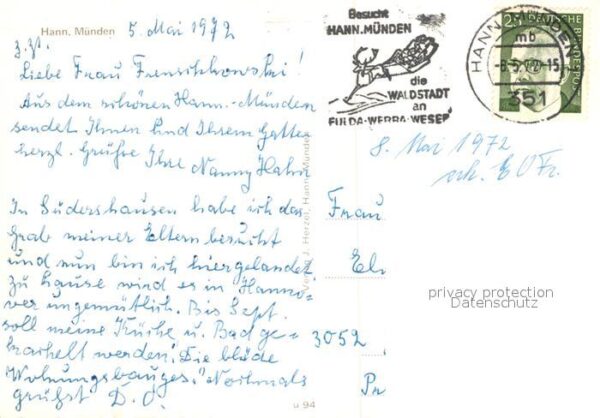 Hann. Münden
z. Zt. 5. Mai 1972
Liebe Frau Frenschkowski!
Aus dem schönen Hann.-Münden
sendet Ihnen und Ihrem Gatten
herzl. Grüße Ihre Nanny Hahn
In Lüdershausen habe ich das
Grab meiner Eltern besucht
und nun bin ich hier gelandet
zu Hause wird es in Hanno-
ver ungemütlich. Bis Sept.
soll meine Küche u. Bad ge-
kachelt werden! Die blöde
Wohnungsbauges." Nochmals
grüßt D. O.
u 94
Besucht
HANN. MÜNDEN
die
WALDSTADT
an
FULDA-WERRA-WESER
HANN. MÜNDEN 1
mb
-8.5.72-15
351
DEUTSCHE BUNDESPOST
8. Mai 1972
Frau
El
privacy protection
Datenschutz
3052